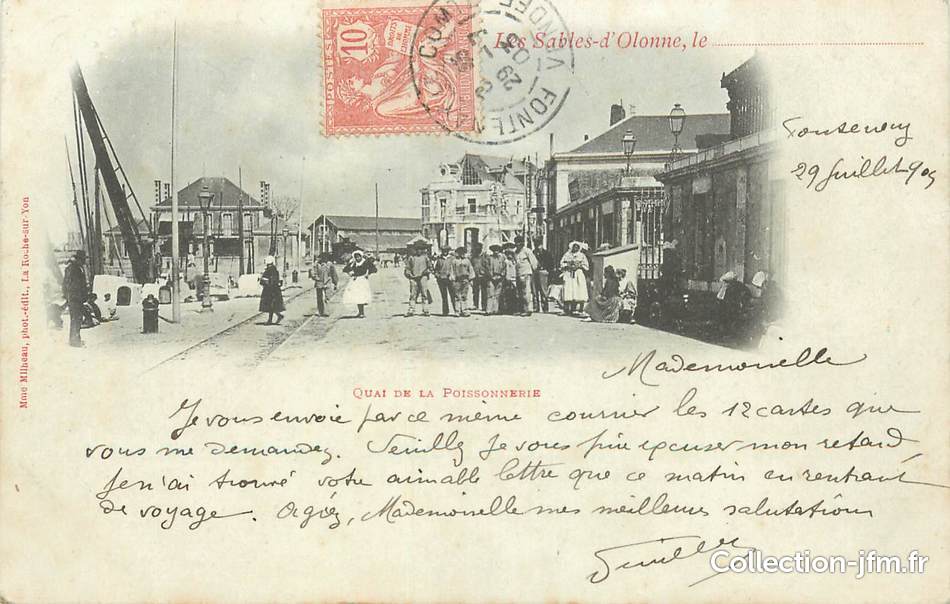 POSTES
10
DROITS DE L'HOMME
Les Sables-d'Olonne, le
FONTENAY
29
05
VENDÉE
Fontenay
29 Juillet 905
Mme Milheau, phot.-édit., La Roche-sur-Yon
QUAI DE LA POISSONNERIE
Mademoiselle
Je vous envoie par ce même courrier les 12 cartes que
vous me demandez. Veuillez je vous prie excuser mon retard
Je n'ai trouvé votre aimable lettre que ce matin en rentrant
de voyage. Agréez, Mademoiselle mes meilleures salutations
Collection-jfm.fr